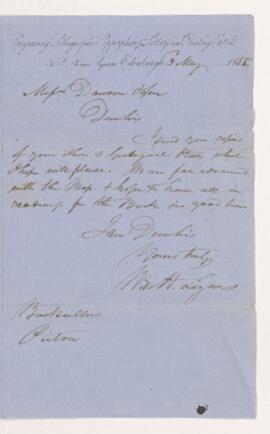 Engraving, Lithographic, Copperplate & Letterpress Printing
James Square, Edinburgh 3 May 185
Messrs Dawson & Son
Dear Sirs
I send you copies
of your other 3 Geological Plates which
I hope will please. We are far advanced
with the Map & hope to have all in
readiness for the Book in good time
I am Dear Sirs
Yours truly
Wm. H. Lizars
Booksellers
Pictou